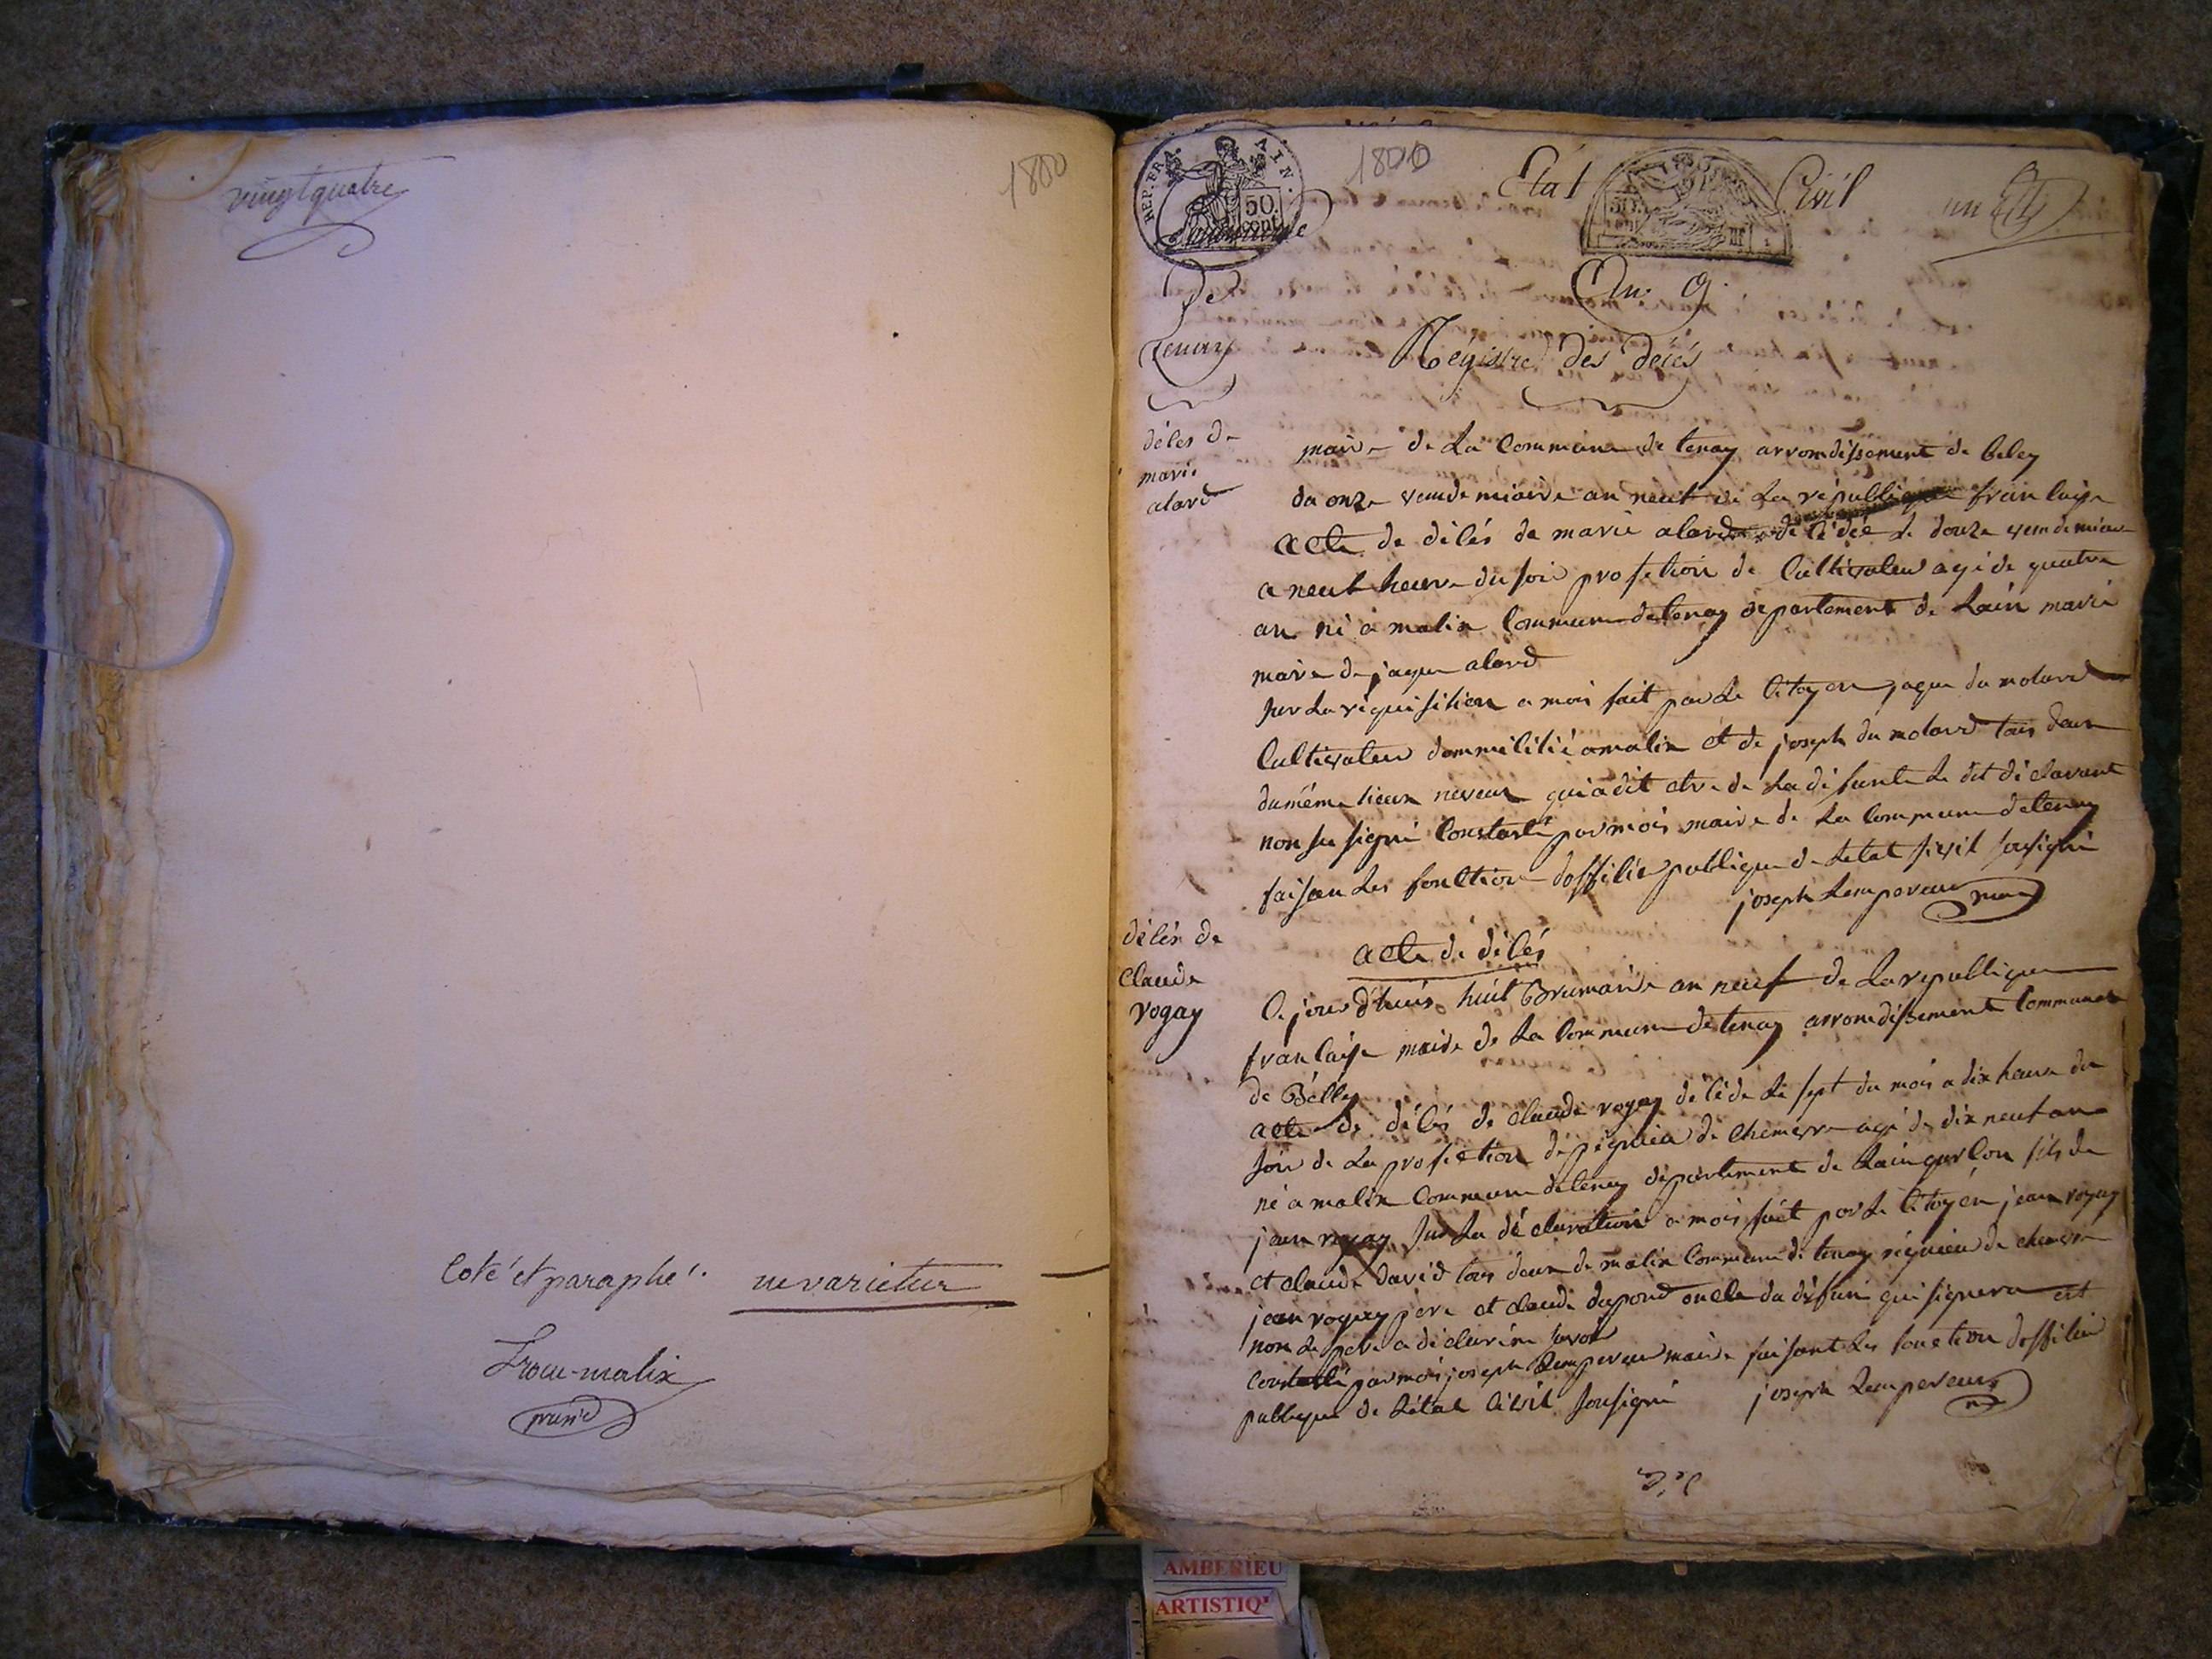 vingt quatre
1800
Coté et paraphé. ne varietur
REP. FRA. AIN.
50.
cent.
1800
Etat Civil
un
De
Tenay
An 9
Régistre des décés
décés de
marie
alard
maire de La Commune de tenay arrondissement de beley
du onze vendemiaire an neuf de La république francaise
acte de décés de marie alard décédé le douze vendemiaire
a neuf heure du soir profetion de Cultivateu agé de quatre
an né a malix Commune de tenay departement de Lain marié
maire de jaque alard
sur La réquisition a moi fait par Le Citoyen jaque du molard
Cultivateu dommicilié a malix et de joseph du molard tous deux
du même lieux neveux qui a dit etre de La défunte Le dit déclarant
non su signé Constaté par moi maire de La Commune de tenay
faisan Les fonction dofficié publique de Letat sivil sousigné
joseph Lempereur maire
décés de
Claude
Vogay
acte de décés
Ce jourd'huis huit Brumaire an neuf de La republique
francaise maire de La Commune de tenay arrondissement Communal
de Belley
acte de décés de Claude vogay décédé Le sept du mois a dix heure du
soir de La profetion de pégnieu de Chenevre agé de dix neuf an
né a malix Commune de tenay département de Lain garson fils de
jean vogay sur La déclaration a moi fait par Le Citoyén jean vogay
et Claude david tous deux de malix Commune de tenay pégnieu de chenevre
jean vogay pere et Claude dupond oncle du défun qui signera est
non Le pere a déclaré ne savoir
Constaté par moi joseph Lempereur maire faisant Les fonction dofficié
publique de Létat Civil sousigné joseph Lempereur
AMBERIEU
ARTISTIQ'